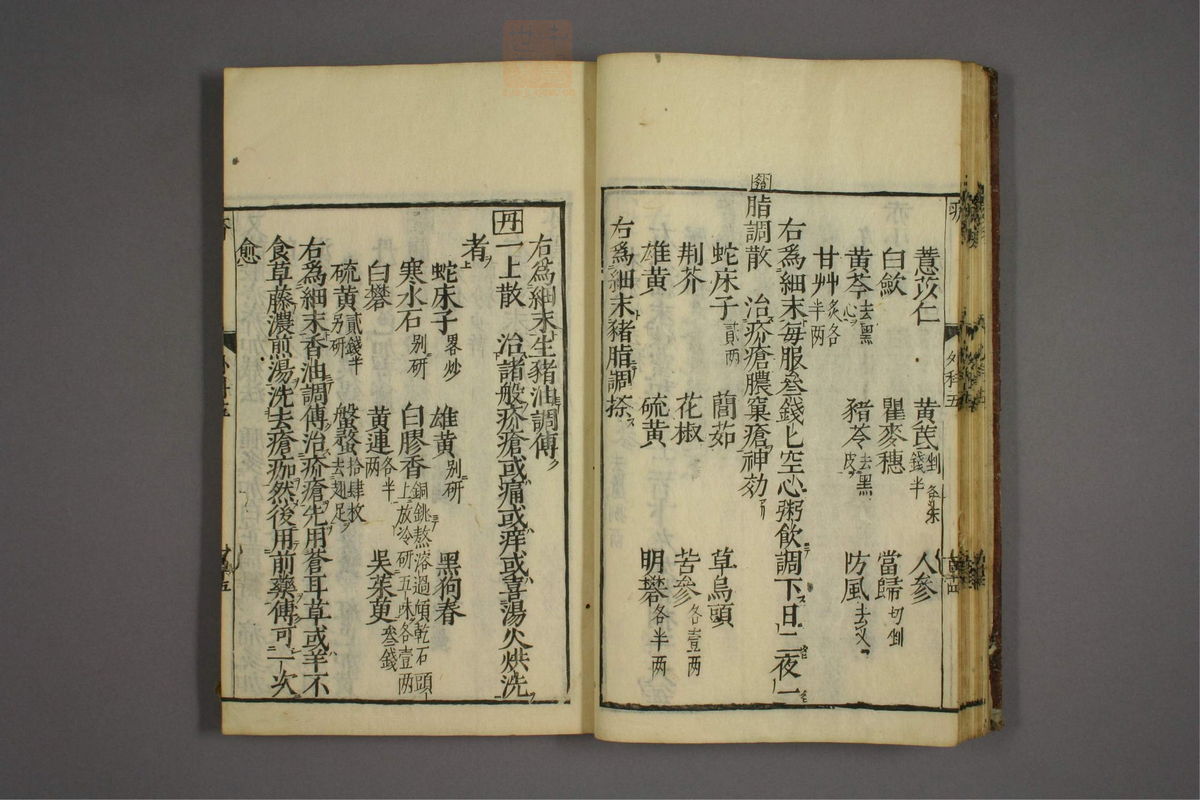 薏苡仁 黄芪剉各朱錢半 人參
白歛 瞿麥穗 當歸切剉
黄芩去黑心 豬苓去黑皮 防風去叉
甘艸炙各半两
右爲細末每服叄錢匕空心粥飲調下日二夜一
脂調散 治疥瘡膿窠瘡神効
蛇床子貳两 䕡茹 草烏頭
荆芥 花椒 苦參各壹两
雄黄 硫黄 明礬各半两
右爲細末豬脂調搽
右爲細末生豬油調傅
丹 一上散 治諸般疥瘡或痛或痒或喜湯火烘洗
者
蛇床子畧炒 雄黄别研 黑狗脊
寒水石别研 白膠香銅銚熬溶過傾乾石頭上放冷研五味各壹两
白礬 黄連各半两 吴茱萸叄錢
硫黄貳錢半别研 盤蝥拾肆枚去翅足
右爲細末香油調傅治疥瘡先用蒼耳草或羊不
食草藤濃煎湯洗去瘡痂然後用前藥傅可一次
愈